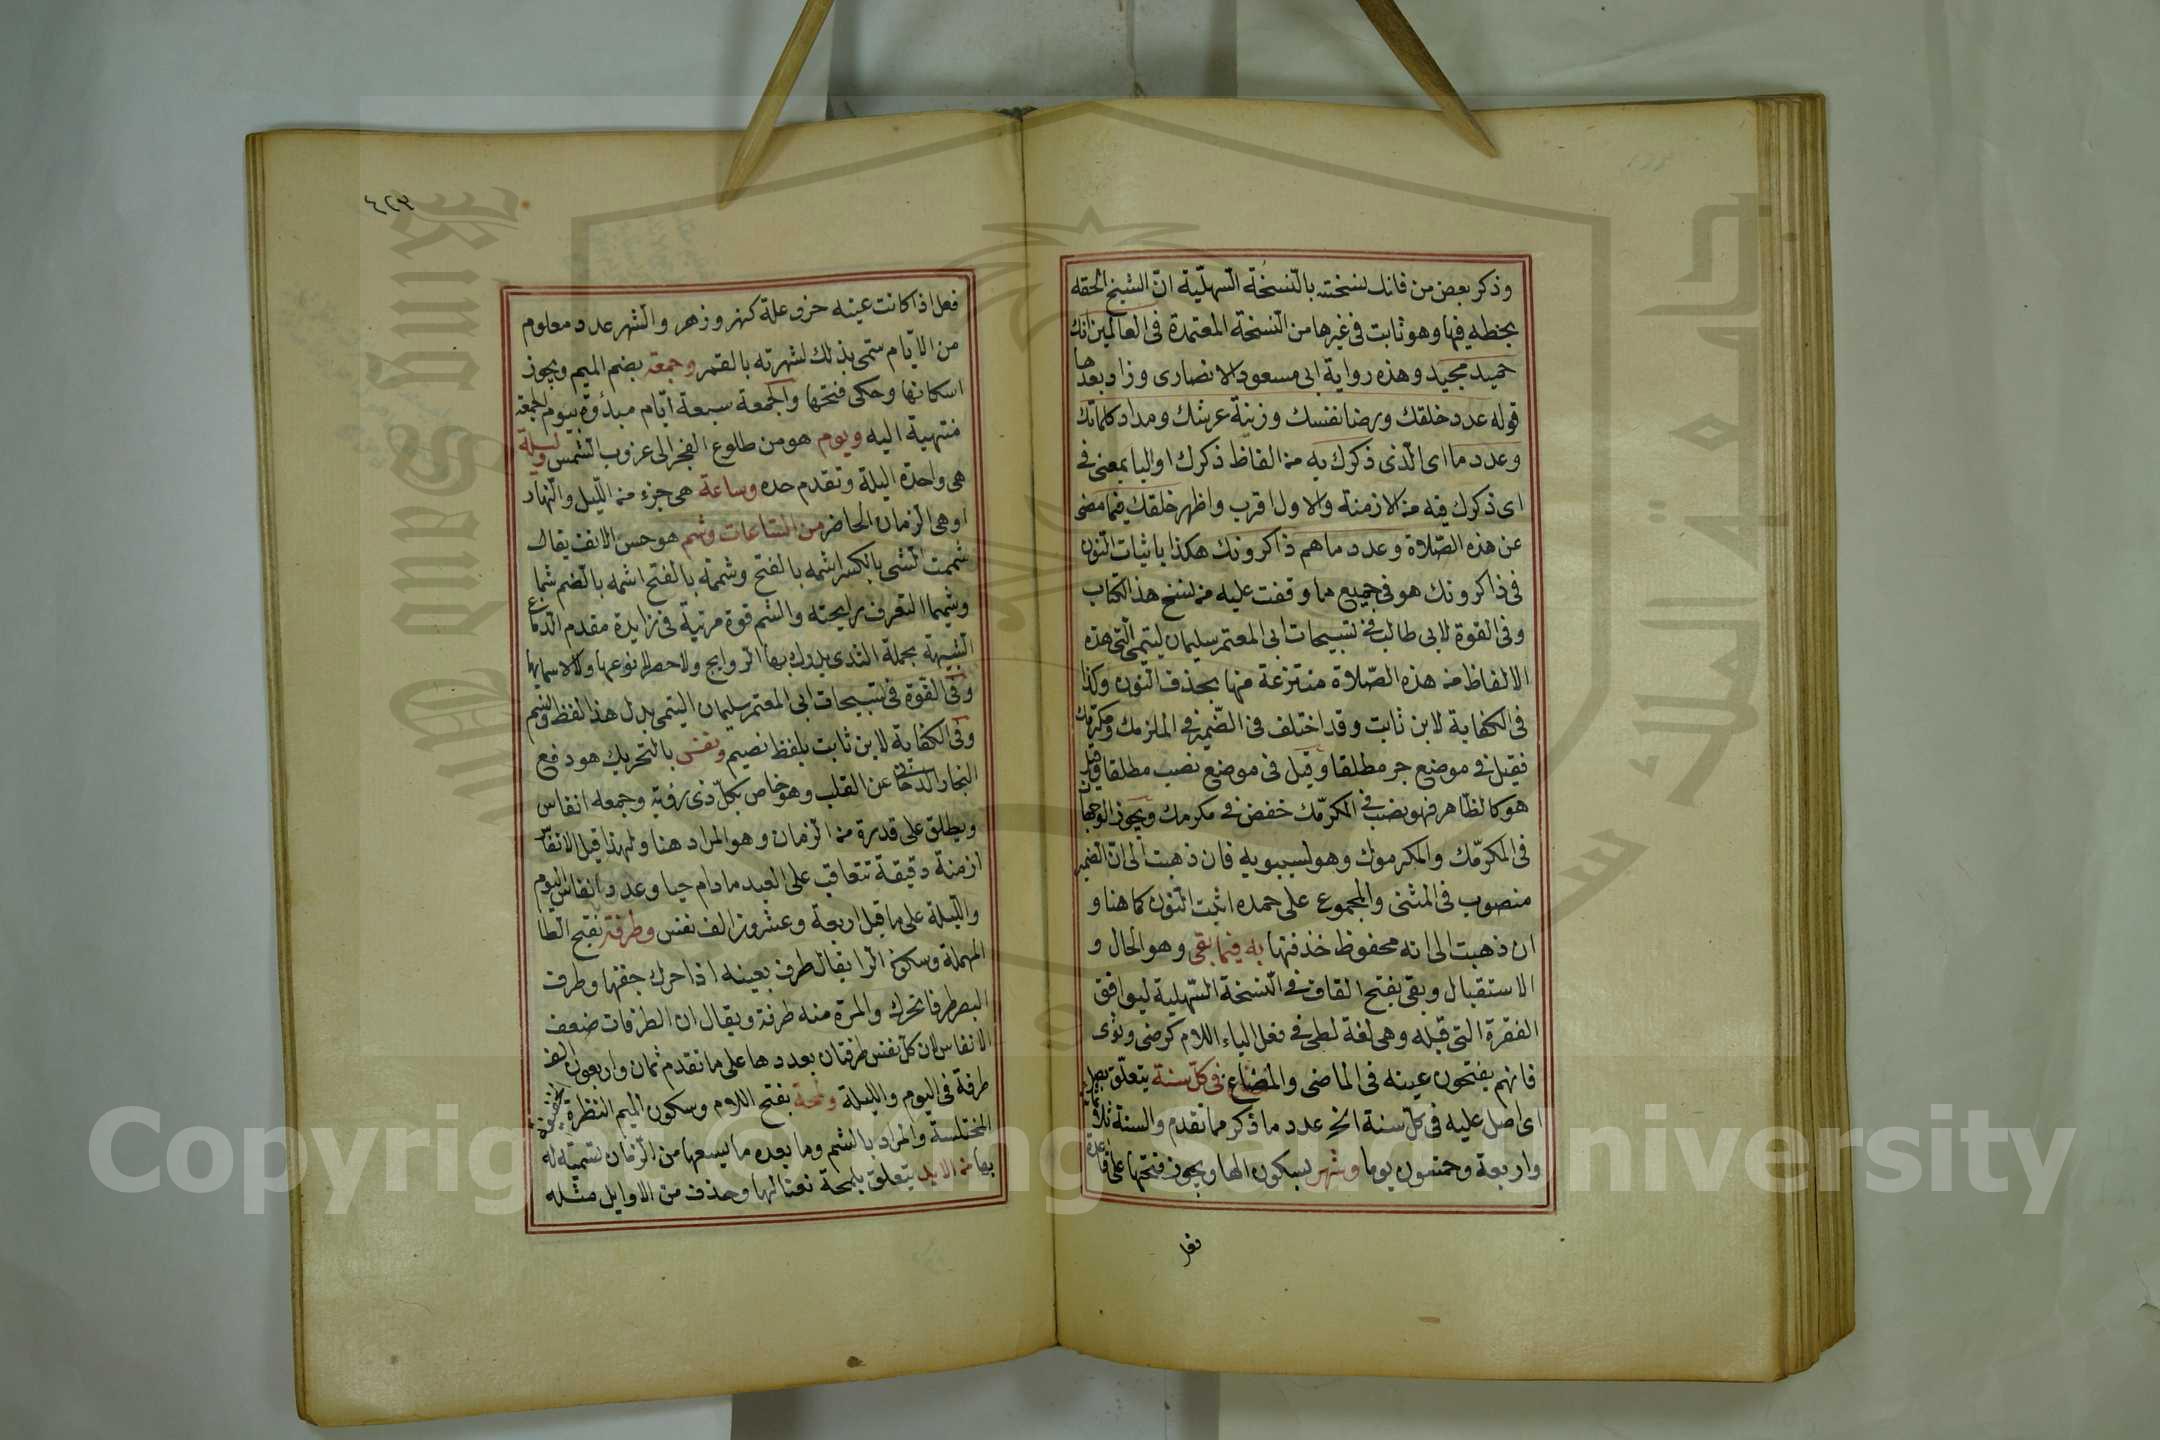 وذكر بعض من قابل نسخته بالنسخة السهلية ان الشيخ الحقه
بخطه فيها وهو ثابت في غيرها من النسخة المعتمدة في العالمين انك
حميد مجيد وهذه رواية ابى مسعود الانصارى وزاد بعدها
قوله عدد خلقك ورضا نفسك وزنة عرشك ومداد كلماتك
وعدد ما اى الذى ذكرك به من الفاظ ذكرك او البا بمعنى في
اى ذكرك فيه من الازمنة والاول اقرب واظهر خلقك فيما مضى
عن هذه الصلاة وعدد ما هم ذاكرونك هكذا باثبات النون
في ذاكرونك هو في جميع ما وقفت عليه من نسخ هذا الكتاب
وفى القوة لابى طالب في تسبيحات ابى المعتمر سليمان التيمى التى هذه
الالفاظ من هذه الصلاة منتزعة منها بحذف النون وكذا
في الكفاية لابن ثابت وقد اختلف في الضمير في الملزمك ومكرمك
فقيل في موضع جر مطلقا وقيل في موضع نصب مطلقا وقيل
هو كالظاهر فهو نصب في المكرمك خفض في مكرمك ويجوز الوجهان
في المكرمك والمكرموك وهو لسيبويه فان ذهبت الى ان الضمير
منصوب في المثنى والمجموع على حمده اثبت النون كما هنا و
ان ذهبت الى انه محفوظ خذفتها به فيما بقى وهو الحال و
الاستقبال وبقى بفتح القاف في النسخة السهلية ليوافق
الفقرة التى قبله وهى لغة لطى في فعل الياء اللام كرضى وثوى
فانهم يفتحون عينه في الماضى والمضارع في كل سنة يتعلق بصل
اى اصل عليه في كل سنة الخ عدد ما ذكر مما تقدم والسنة ثلاثمائة
واربعة وخمسون يوما وشهر بسكون الها ويجوز فتحها على قاعدة
فعل
٤٢٣
فعل اذا كانت عينه حرف علة كنهر وزهر والشهر عدد معلوم
من الايام سمى بذلك لشهرته بالقمر وجمعة بضم الميم ويجوز
اسكانها وحكى فتحها والجمعة سبعة ايام مبدؤة بيوم الجمعة
منتهية اليه ويوم هو من طلوع الفجر الى غروب الشمس وليلة
هى واحدة اليلة وتقدم حده وساعة هى جزء من الليل والنهار
او هى الزمان الحاضر من الساعات وشم هو حس الانف يقال
شممت الشى بالكسر اشمه بالفتح وشممته بالفتح اشمه بالضم شما
وشميما التعرف برايحته والشم قوة مرتبة في زايدة مقدم الدماغ
الشبيهة بحملة الثدى يدرك بها الروايح ولا حصر لنوعها ولا لاسمايها
وفى القوة في تسبيحات ابى المعتمر سليمان التيمى بدل هذا لفظ ونسيم
وفى الكفاية لابن ثابت بلفظ نصيم ونفس بالتحريك هو دفع
البخار الدخانى عن القلب وهو خاص بكل ذى رؤية وجمعه انفاس
ويطلق على قدرة من الزمان وهو المراد هنا ولهذا قيل الانفاس
ازمنة دقيقة تتعاقب على العبد مادام حيا وعدد انفاس اليوم
والليلة على ما قيل اربعة وعشرون الف نفس وطرفة بفتح الطا
المهملة وسكون الرا يقال طرف بعينه اذا حرك جفنها وطرف
البصر طرفا تحرك والمرة منه طرفة ويقال ان الطرفات ضعف
الانفاس لان كل نفس طرفتان بعددها على ما تقدم ثمان واربعون الف
طرفة في اليوم والليلة ولمحة بفتح اللام وسكون الميم النظرة الخفيفة
المختلسة والمراد بالشم وما بعده ما يسعها من الزمان تسمية له
بها من الابد يتعلق بلمحة نعتا لها وحذف من الاوايل مثله